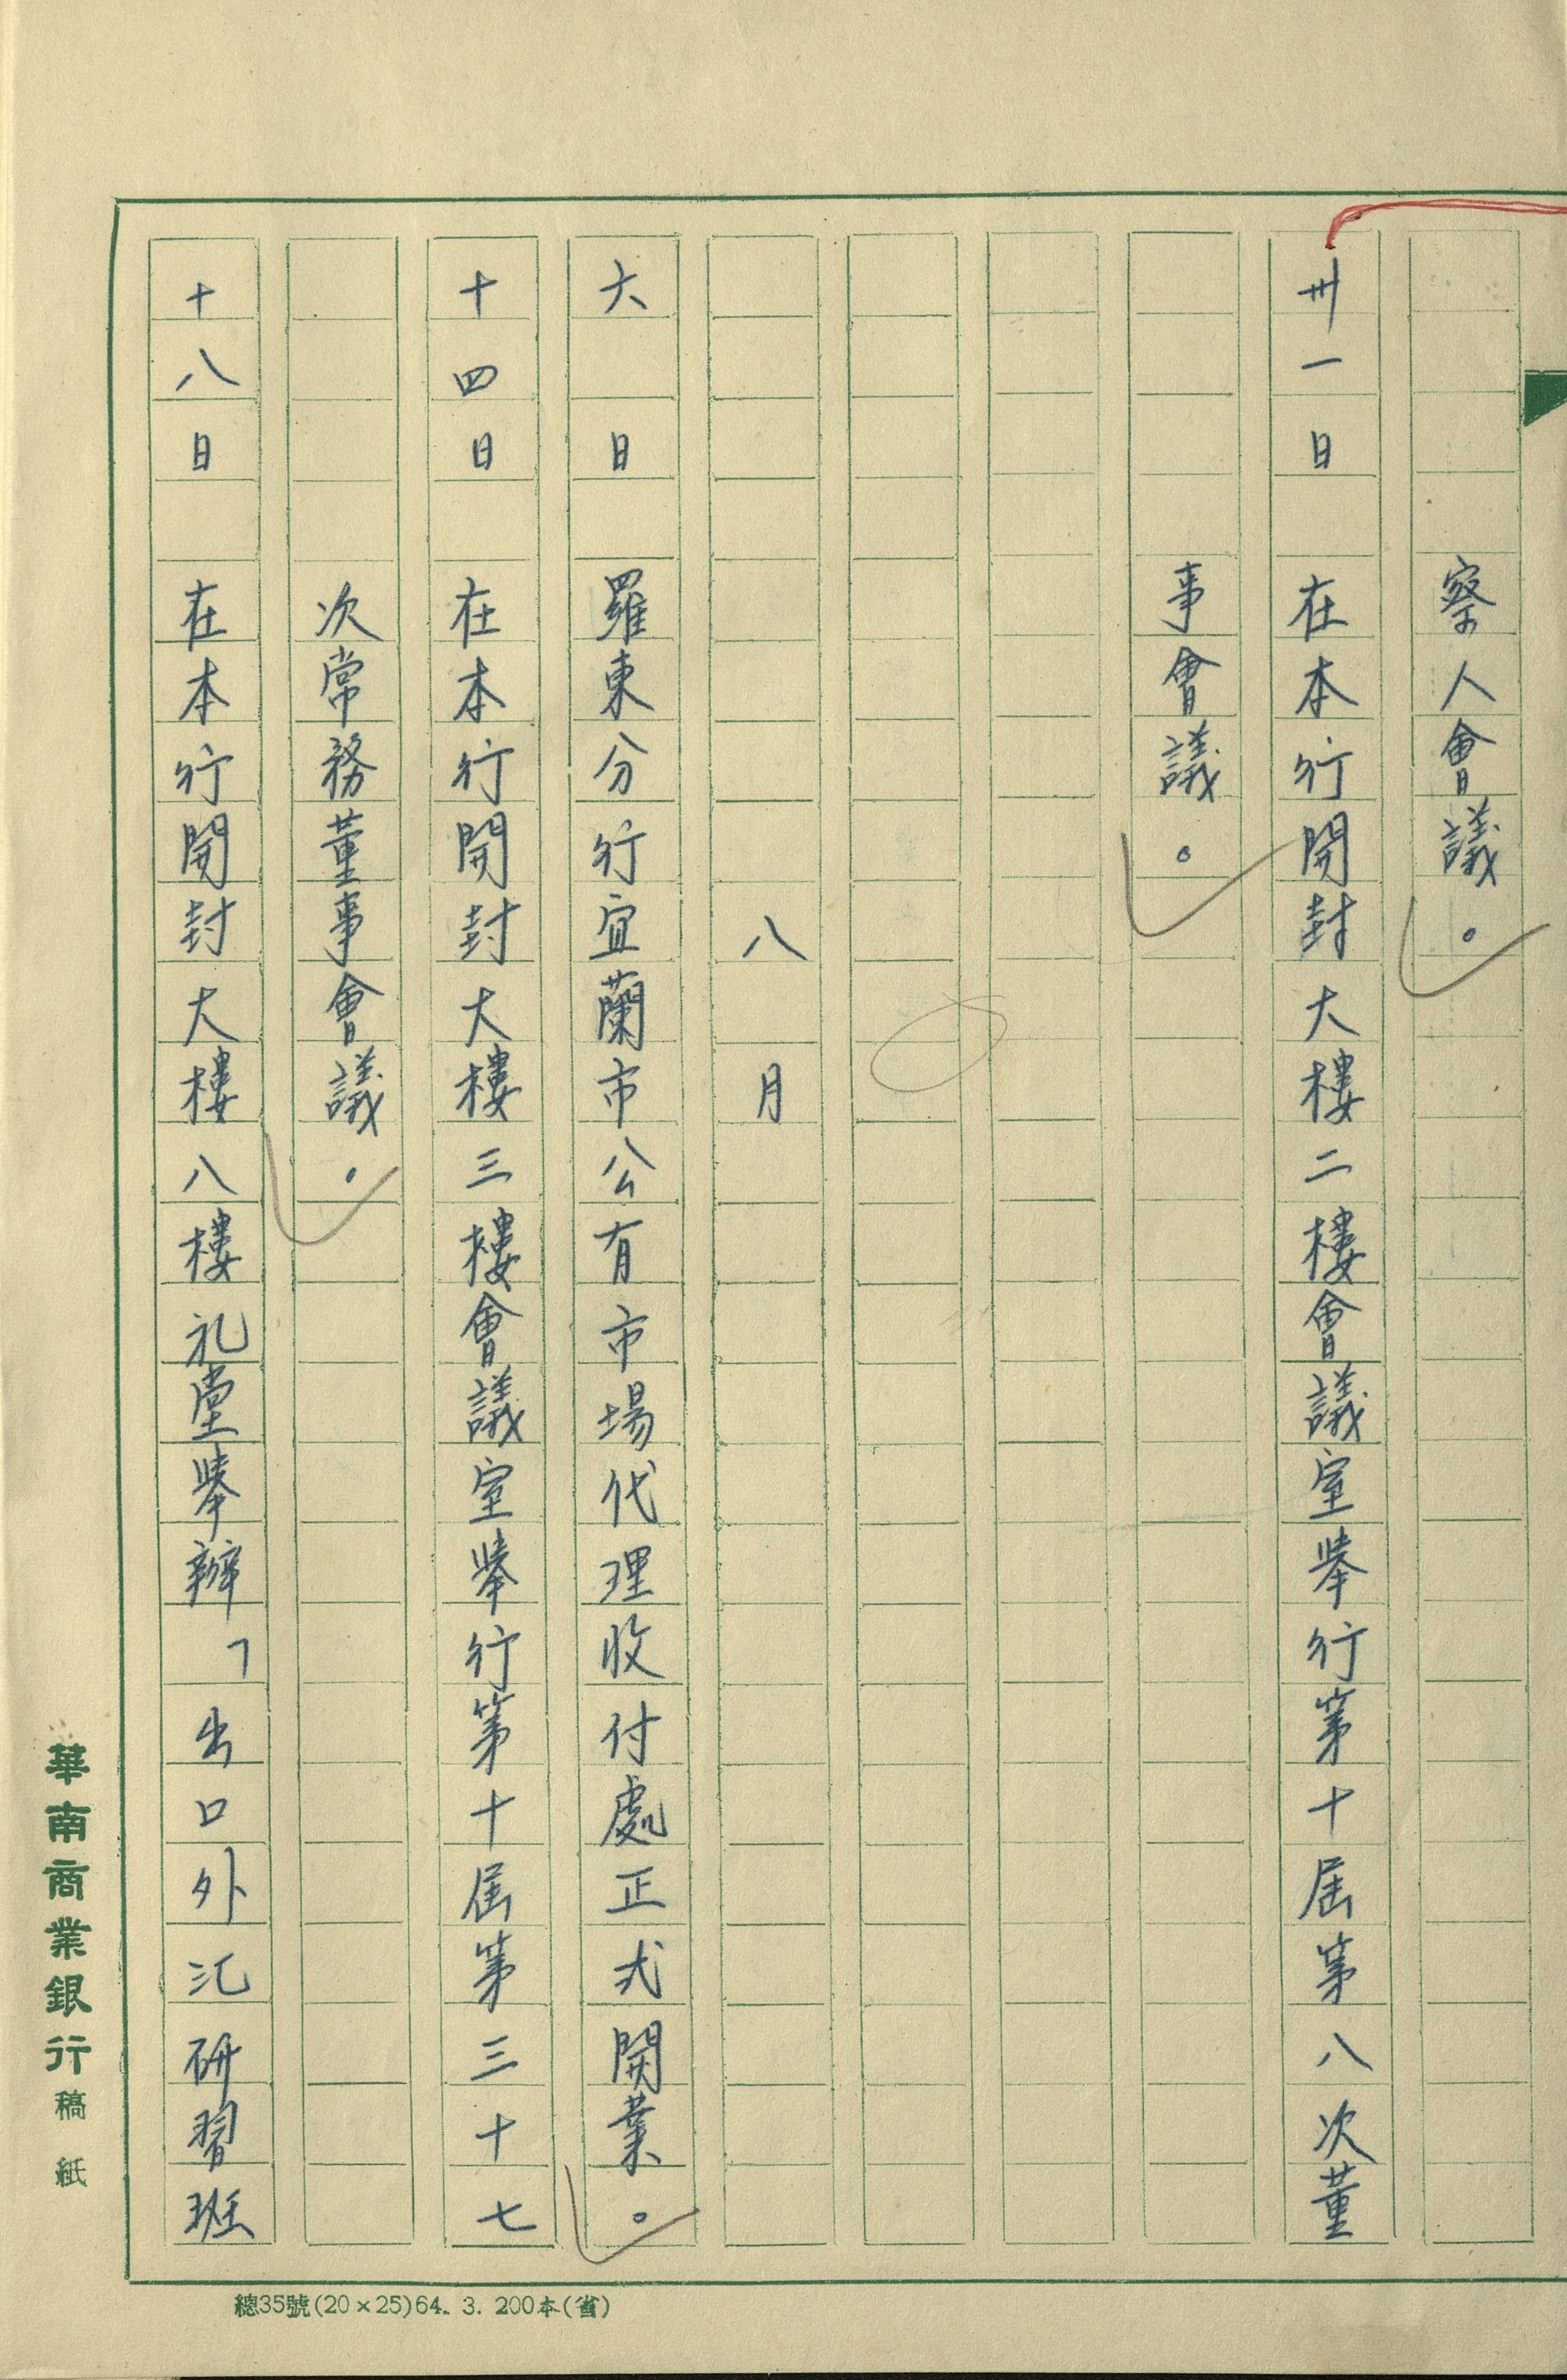 察人會議。
卅一日　在本行開封大樓二樓會議室舉行第十屆第八次董
事會議。
八　月
六　日　羅東分行宜蘭市公有市場代理收付處正式開業。
十四日　在本行開封大樓三樓會議室舉行第十屆第三十七
次常務董事會議。
十八日　在本行開封大樓八樓礼堂舉辦「出口外汇研習班
華南商業銀行稿紙
總35號(20×25)64. 3. 200本(省)